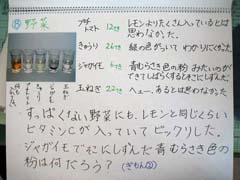 ⑬ 野菜
プチトマト 12てき レモンよりたくさん入っているとは思わなかった。
きゅうり 26てき 緑の色がついて わかりにくかった。
ジャガイモ 6てき 青むらさき色の粉 みたいのができてしばらくするとそこにしずんだ。
玉ねぎ 22てき へぇー、あるとは思わなかった
すっぱくない野菜にも、レモンと同じくらい
ビタミンCが入っていてビックリした。
ジャガイモでそこにしずんだ青むらさき色の
粉は何だろう？(ぎもん②)